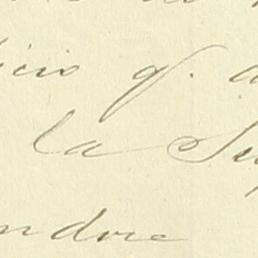 icio q. a
la Su
ndore